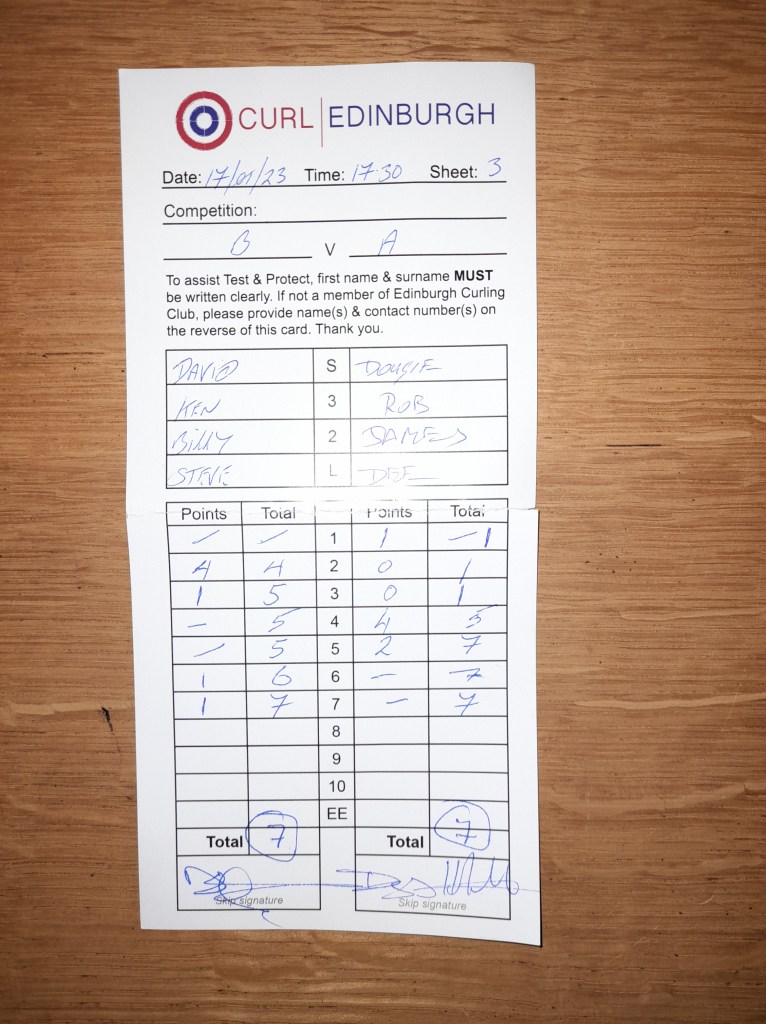 CURL EDINBURGH
Date: 17/01/23 Time: 17.30 Sheet: 3
Competition:
B V A
To assist Test & Protect, first name & surname MUST
be written clearly. If not a member of Edinburgh Curling
Club, please provide name(s) & contact number(s) on
the reverse of this card. Thank you.
DAVID S DOUGIE
KEN 3 ROB
BILLY 2 JAMES
STEVE L DEE
Points Total Points Total
- - 1 1 - 1
4 4 2 0 1
1 5 3 0 1
- 5 4 4 5
- 5 5 2 7
1 6 6 - 7
1 7 7 - 7
8
9
10
EE
Total 7 Total 7
Skip signature Skip signature